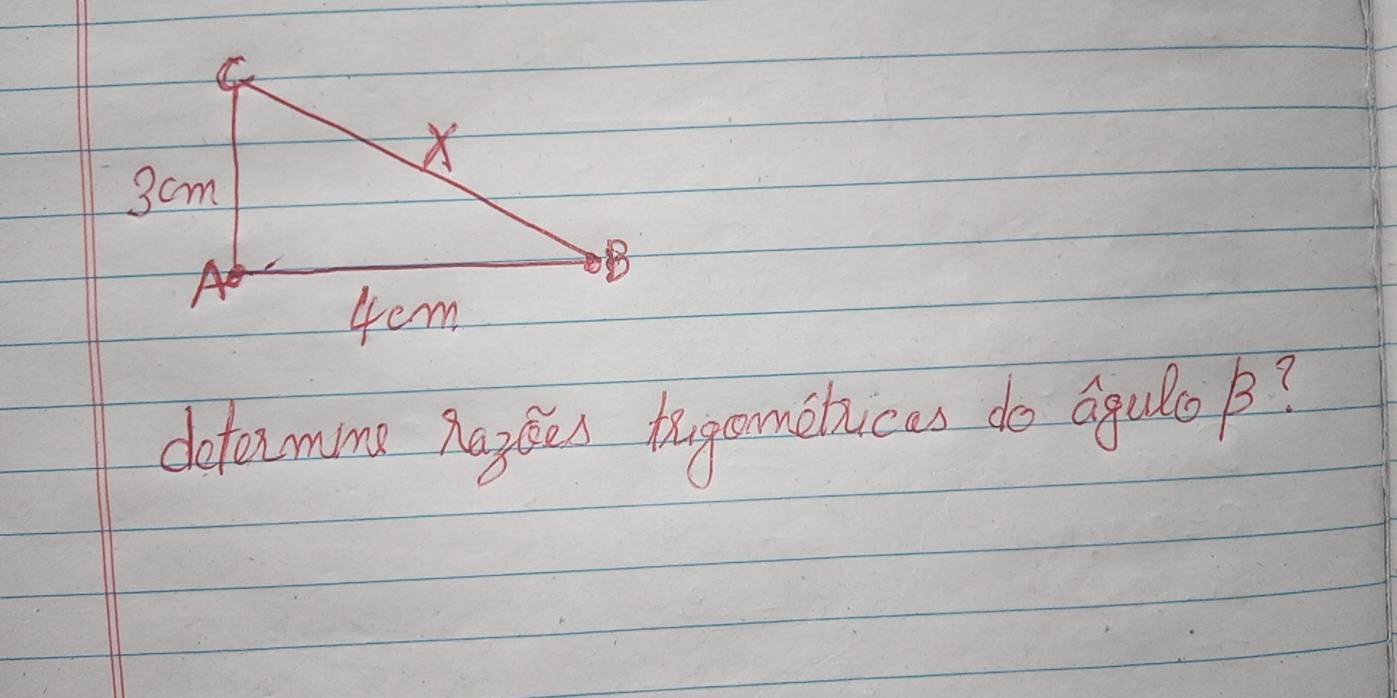 C
X
3cm
A
B
4cm
determine razões trigométricas do âgulo β?